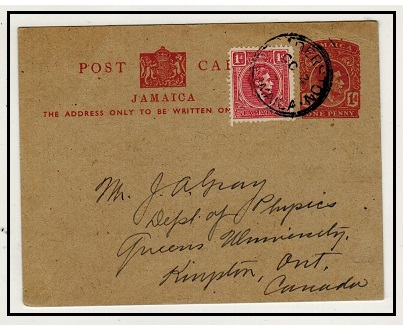 POST CA
JAMAICA
THE ADDRESS ONLY TO BE WRITTEN ON
1D 1D
ONE PENNY
Mr. J. A. Gray
Dept. of Physics
Queens University.
Kingston, Ont.
Canada